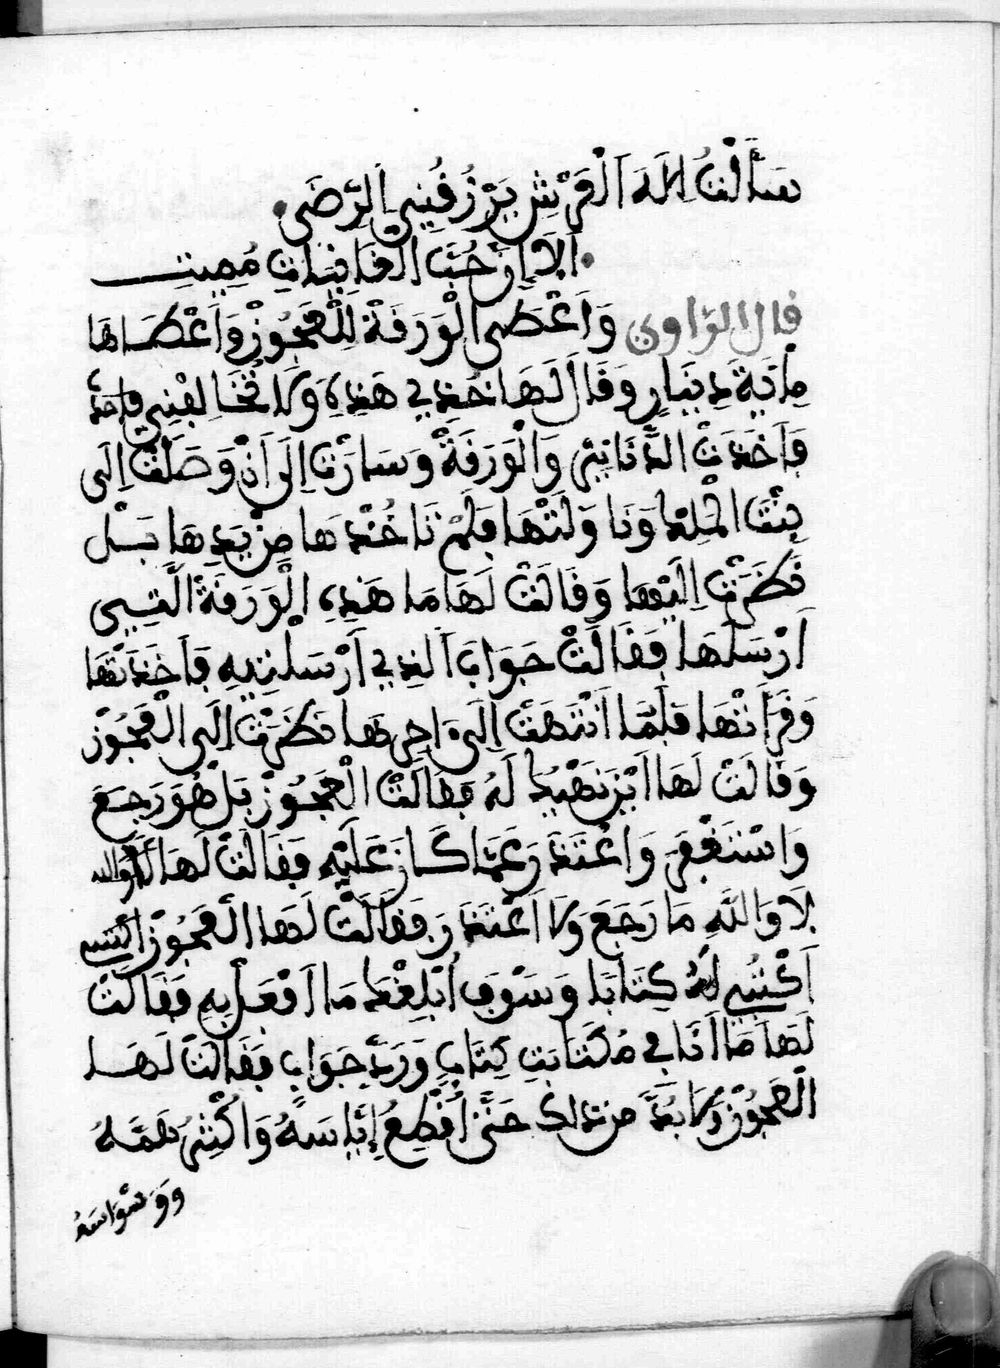 سَأَلْتُ إِلَهَ الْعَرْشِ يَرْزُقُنِي الرِّضَى
أَلَا إِنَّ حُبَّ الْغَانِيَاتِ مُصِيبَت
قال الراوي وَاَعْطَى الْوَرَقَةَ لِلْعَجُوزْ وَاَعْطَاهَا
مِايَةَ دِينَارٍ وَقَالَ لَهَا خُذِي هَذِهِ وَلَا تُخَالِفِينِي
فَاَخَذَتْ الدَّنَانِيرَ وَالْوَرَقَةَ وَسَارَتْ اِلَى اَنْ وَصَلَتْ اِلَى
بِنْتَ الْمَلِكِ وَنَاوَلَتْهَا فَلَمْ تَاخُذْهَا مِنْ يَدِهَا بَلْ
نَظَرَتْ اِلَيْهَا وَقَالَتْ لَهَا مَا هَذِهِ الْوَرَقَةَ الَّتِي
اَرْسَلَهَا فَقَالَتْ جَوَابَ الذِي اَرْسَلْتِيهِ فَاَخَذَتْهَا
وَقَرَأَتْهَا فَلَمَّا اَنْتَهَتْ اِلَى اخِرِهَا نَظَرَتْ اِلَى الْعَجُوزْ
وَقَالَتْ لَهَا اَيْنَ تَهْدِيدًا لَهُ فَقَالَتْ الْعَجُوزْ بَلْ هُوَ رَجَعَ
وَاسْتَغْفَرَ وَاعْتَذَرَ عَمَّا كَانَ عَلَيْهِ فَقَالَتْ لَهَا لَا وَالله
لَا وَاللَّهِ مَا رَجَعَ وَلَا اعْتَذَرَ فَقَالَتْ لَهَا الْعَجُوزْ اكتبي
اَكْتُبِي لَهُ كِتَابًا وَسَوْفَ اُبَلِّغُكِ مَا اَفْعَلُ بِهِ فَقَالَتْ
لَهَا مَا اَنَا فِي مُكَتَابَتِ كِتَابٍ وَرَدِّ جَوَابٍ فَقَالَتْ لَهَا
الْعَجُوزْ وَلَا بُدَّ مِنْ ذَلِكَ حَتَّى اَقْطَعُ إِيَاسَهُ وَاَكْثِرُ هَمَّهُ
وَوَسْوَاسَهُ